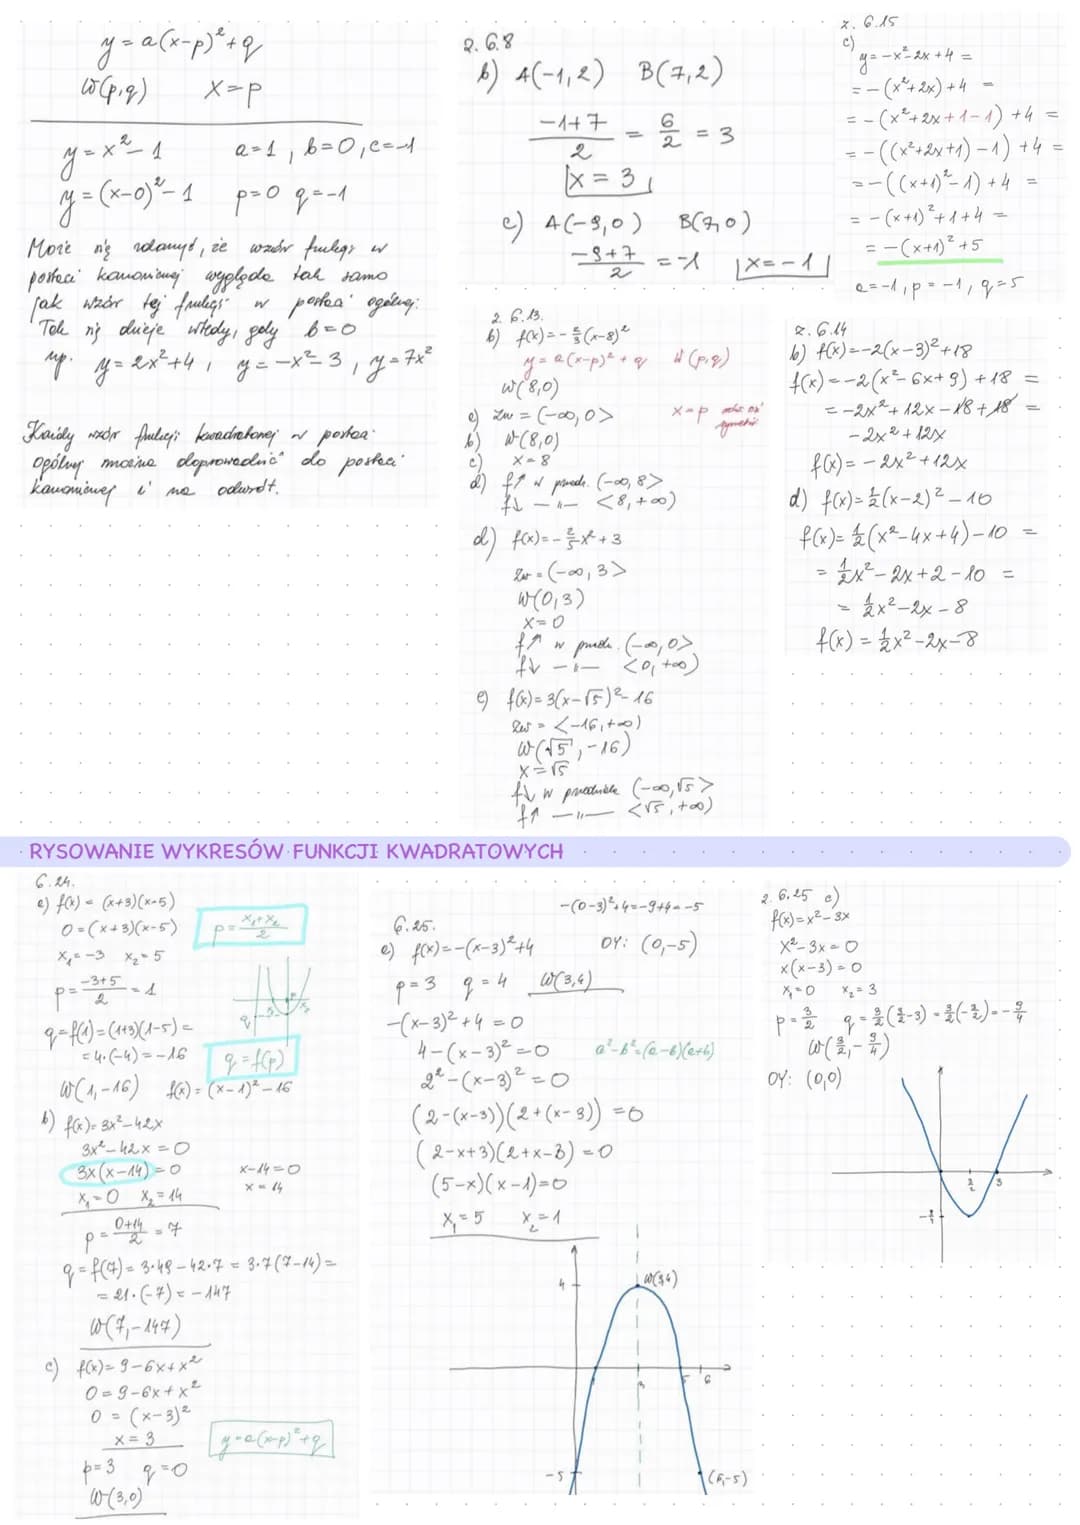 y = a(x-p)² + q
W(p,q) x=p
y = x² - 1 a=1, b=0, c=-1
y = (x-0)² - 1 p=0 q=-1
Może się zdarzyć, że wzór funkcji w
postaci kanonicznej wygląda tak samo
jak wzór tej funkcji w postaci ogólnej.
Tak się dzieje wtedy, gdy b=0
np. y = 2x²+4, y = -x²-3, y = 7x²
Każdy wzór funkcji kwadratowej w postaci
ogólnej można doprowadzić do postaci
kanonicznej i na odwrót.
z. 6.8
b) A(-1,2) B(7,2)
\frac{-1+7}{2} = \frac{6}{2} = 3
x = 3
c) A(-9,0) B(7,0)
\frac{-9+7}{2} = -1 x = -1
z. 6.13.
b) f(x) = -\frac{5}{3}(x-8)²
y = a(x-p)² + q W(p,q)
W(8,0)
a) Zw = (-∞,0> x=p
b) W(8,0)
c) x=8
d) f↑ w przedz. (-∞,8>
f↓ —ıı— <8,+∞)
d) f(x) = -\frac{2}{5}x² + 3
Zw = (-∞,3>
W(0,3)
x=0
f↑ w przedz. (-∞,0>
f↓ —ıı— <0,+∞)
e) f(x) = 3(x-√5)² - 16
Zw = <-16,+∞)
W(√5,-16)
x = √5
f↓ w przedziale (-∞,√5>
f↑ —ıı— <√5,+∞)
z. 6.15
c)
y = -x²-2x+4 =
= -(x²+2x)+4 =
= -(x²+2x+1-1)+4 =
= -((x²+2x+1)-1)+4 =
= -((x+1)²-1)+4 =
= -(x+1)²+1+4 =
= -(x+1)²+5
a=-1, p=-1, q=5
z. 6.14
b) f(x) = -2(x-3)²+18
f(x) = -2(x²-6x+9)+18 =
= -2x²+12x-18+18 =
-2x²+12x
f(x) = -2x²+12x
d) f(x) = \frac{1}{2}(x-2)²-10
f(x) = \frac{1}{2}(x²-4x+4)-10 =
= \frac{1}{2}x²-2x+2-10 =
= \frac{1}{2}x²-2x-8
f(x) = \frac{1}{2}x²-2x-8
RYSOWANIE WYKRESÓW FUNKCJI KWADRATOWYCH
6.24.
a) f(x) = (x+3)(x-5)
0 = (x+3)(x-5) p = \frac{x₁+x₂}{2}
x₁=-3 x₂=5
p = \frac{-3+5}{2} = 1
q = f(1) = (1+3)(1-5) =
= 4·(-4) = -16 q = f(p)
W(1,-16) f(x) = (x-1)²-16
b) f(x) = 3x²-42x
3x²-42x = 0
3x(x-14) = 0 x-14=0
x₁=0 x₂=14 x=14
p = \frac{0+14}{2} = 7
q = f(7) = 3·49-42·7 = 3·7(7-14) =
= 21·(-7) = -147
W(7,-147)
c) f(x) = 9-6x+x²
0 = 9-6x+x²
0 = (x-3)²
x = 3 y = a(x-p)²+q
p=3 q=0
W(3,0)
-(0-3)²+4 = -9+4 = -5
6.25.
a) f(x) = -(x-3)²+4 OY: (0,-5)
p=3 q=4 W(3,4)
-(x-3)²+4 = 0
4-(x-3)² = 0 a²-b²=(a-b)(a+b)
2²-(x-3)² = 0
(2-(x-3))(2+(x-3)) = 0
(2-x+3)(2+x-3) = 0
(5-x)(x-1) = 0
x₁=5 x₂=1
4 W(3,4)
1 3 5 6
-5 (6,-5)
z. 6.25 c)
f(x) = x²-3x
x²-3x = 0
x(x-3) = 0
x₁=0 x₂=3
p = \frac{3}{2} q = \frac{3}{2}(\frac{3}{2}-3) = \frac{3}{2}(-\frac{3}{2}) = -\frac{9}{4}
W(\frac{3}{2},-\frac{9}{4})
OY: (0,0)
\frac{3}{2} 3
-\frac{9}{4}